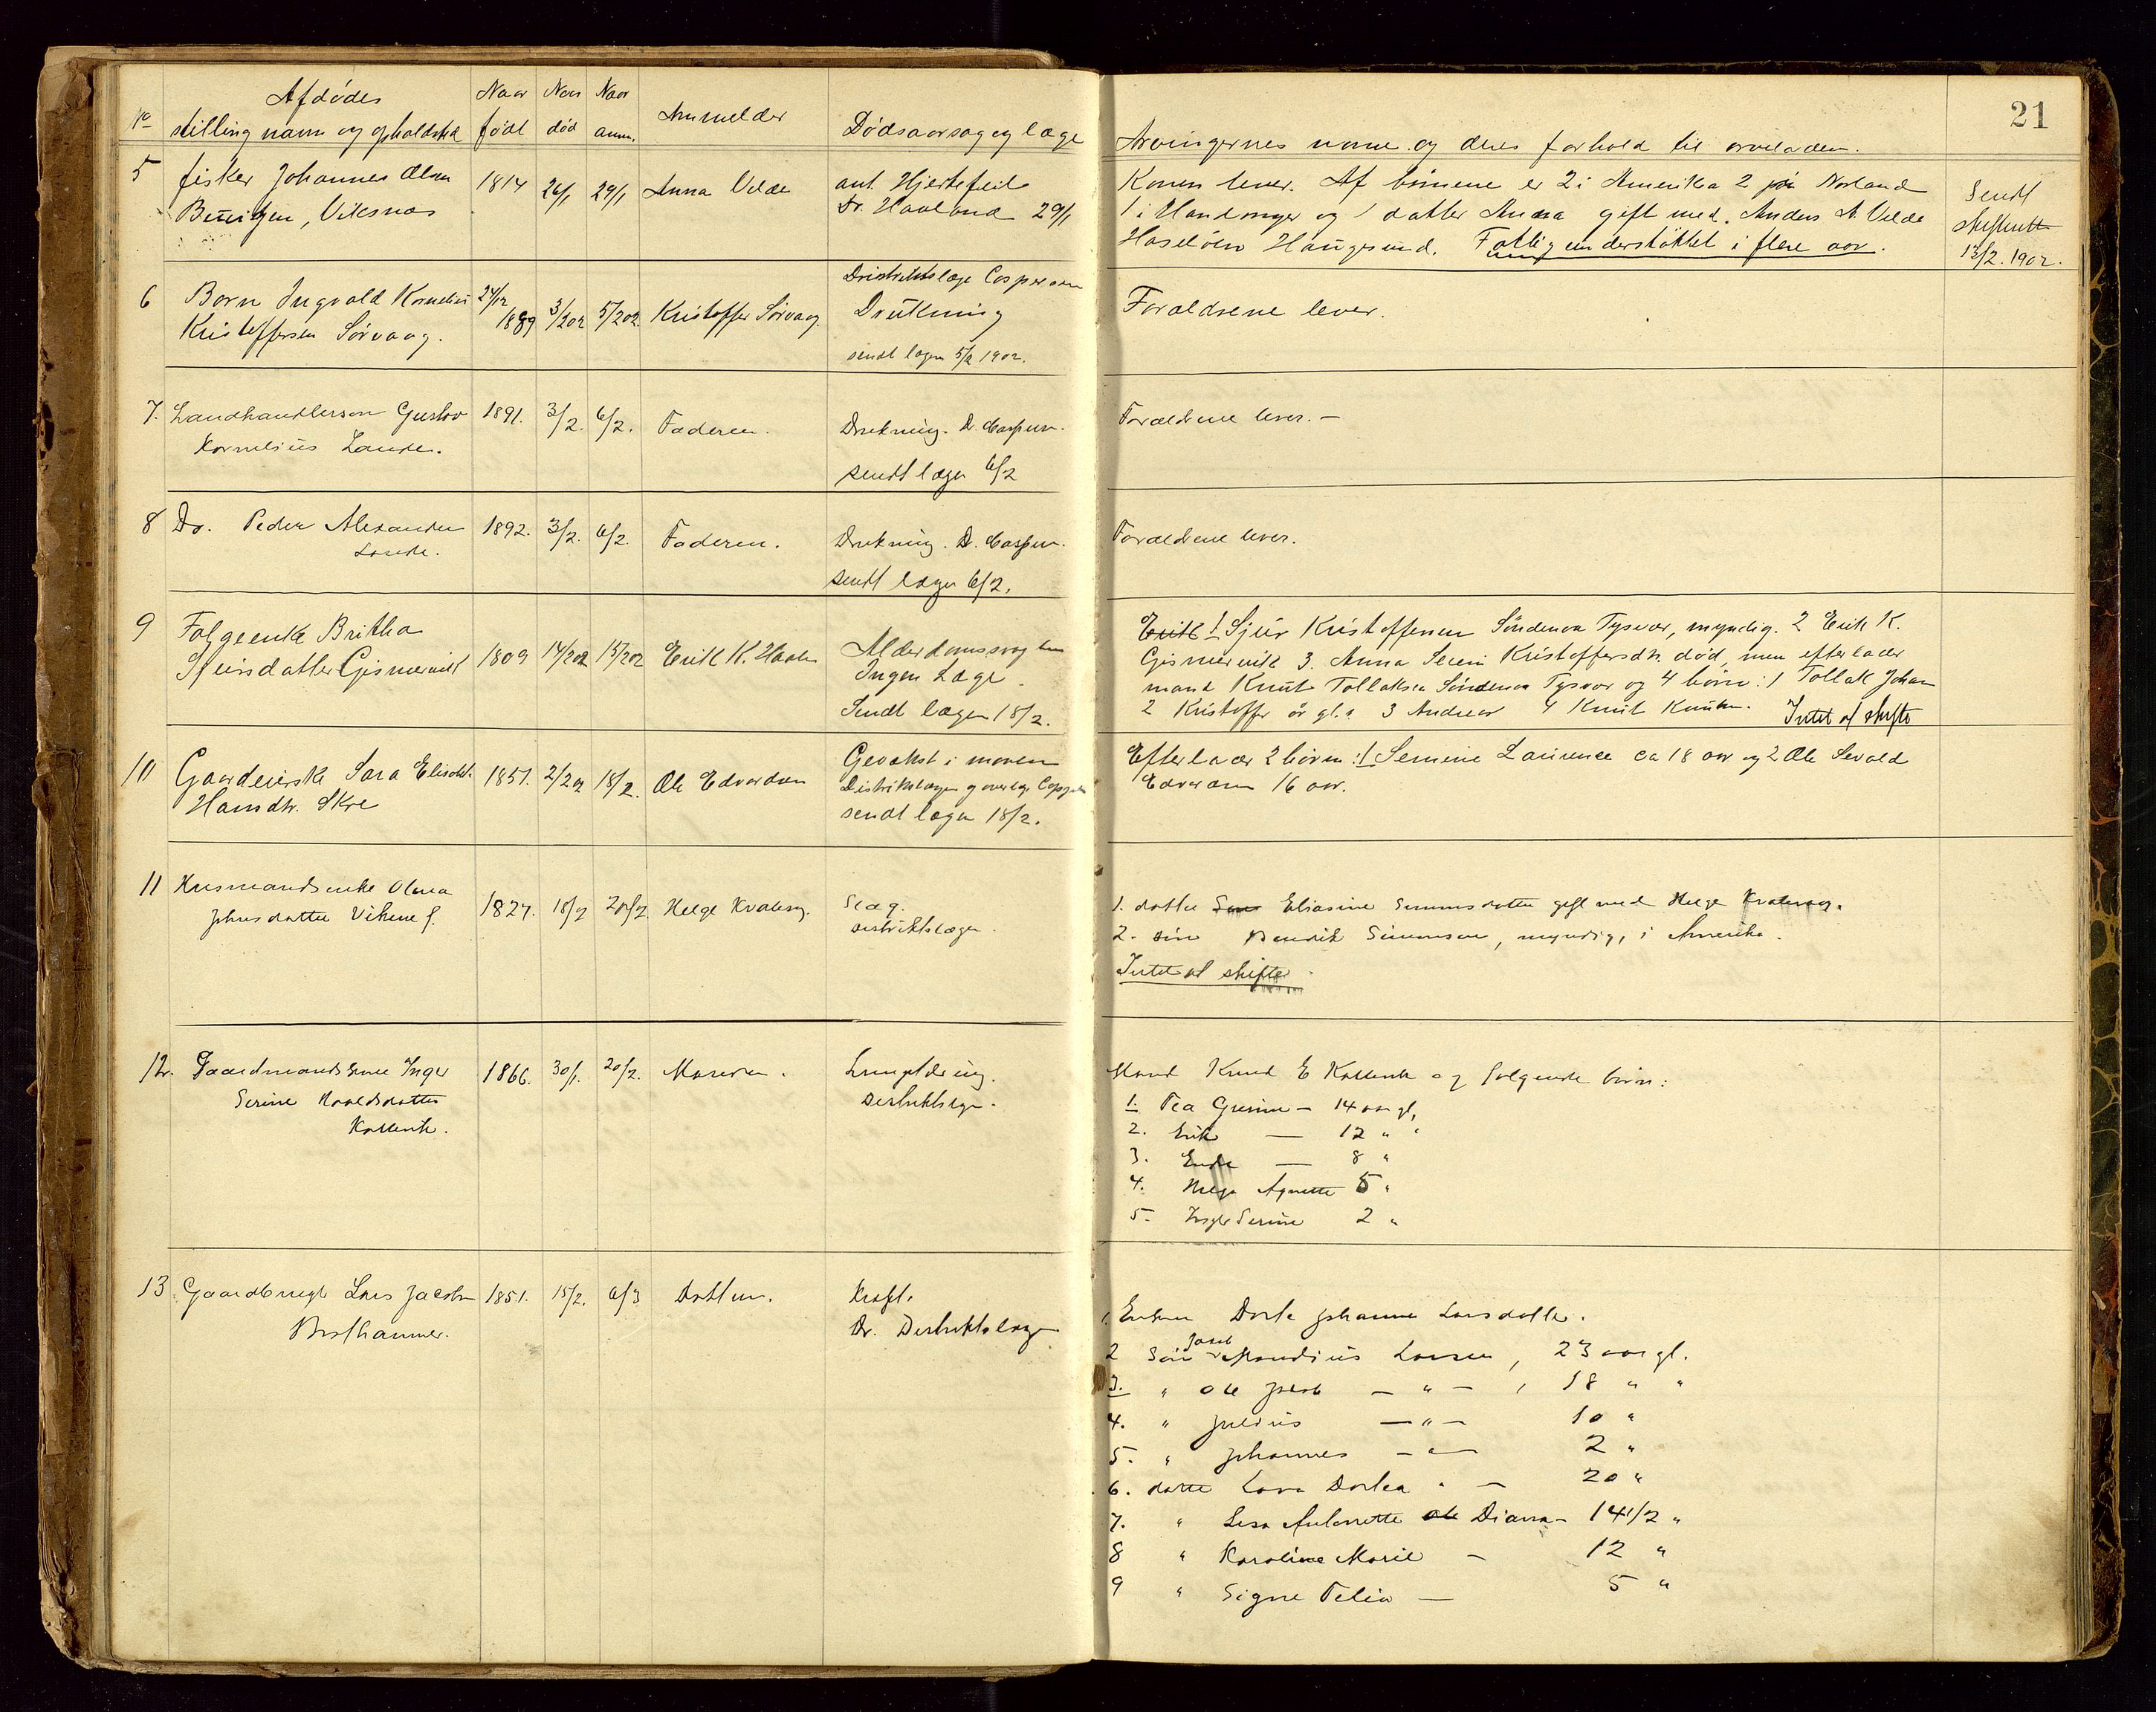 21
No
Afdødes
stilling navn og opholdssted
Naar født
Naar død
Naar anm.
Anmelder
Dødsaarsag og læge
Arvingernes navne og deres forhold til arveladeren.
5
fisker Johannes Olsen
Viksnæs
1814
26/1
29/1
Anna Velde
ant. Hjertefeil
Dr. Haaland 29/1
Konen lever. Af børnene er 2 i Amerika 2 på Norland
1 i Hardanger og 1 datter Anna gift med Anders A. Velde
Haseløen Haugesund. Fattigunderstøttet i flere aar.
Sendt
skifteret
13/2. 1902.
6
Barn Ingvald Kornelius
Kristoffersen Sørvaag.
24/12
1889
3/2 02
5/2 02
Kristoffer Sørvaag.
Distriktslæge Caspersen
Drukning
sendt lægen 5/2 1902.
Forældrene lever.
7.
Landhandlersøn Gustav
Kornelius Lande.
1891.
3/2.
6/2.
Faderen.
Drukning. Dr. Caspersen.
sendt lægen 6/2
Forældrene lever. —
8
Do. Peder Alexander
Lande.
1892.
3/2.
6/2.
Faderen.
Drukning. Dr. Caspersen.
sendt lægen 6/2.
Forældrene lever.
9
Føgeenke Britha
Sjursdatter Gismervik
1809
14/2 02
15/2 02
Erik K.
Alderdomssvaghed
Ingen Læge.
Sendt lægen 18/2.
Erik 1 Sjur Kristoffersen Søndenaa Tysvær, myndig. 2 Erik K.
Gismervik 3. Anna Serine Kristoffersdtr. død, men efterlader
mand Knut Tollaksen Søndenaa Tysvær og 4 børn: 1 Tollak Johan
2 Kristoffer 3 Andreas 4 Knut Knutsen. Intet at skifte
10
Gaardeierske Sara Elisabet
Hansdtr. Skre
1851.
18/2.
Ole Edvardsen
Gevækst i maven
sendt lægen 18/2.
Efterlader 2 børn: 1 Semine Laurence ca 18 aar og 2 Ole Sevald
Edvardsen 16 aar.
11
Husmandsenke Olena
Johnsdatter Vikene
1827.
18/2
20/2
Helge
Slag.
Distriktslægen.
1. datter Eliasine Simonsdatter gift med Helge
2. søn Bendik Simonsen, myndig, i Amerika.
Intet at skifte
12.
Gaardmandskone Inger
Serine
1866.
30/1.
20/2.
Manden.
Distriktslæge.
Mand Knud E og følgende børn:
1. Tea Gurine — 14 aar gl,
2. Erik — 12 " "
3. Endre — 8 "
4. Helga Agnette 5 "
5. Inger Serine 2 "
13
Gaardbruger Lars Jacobsen
1851.
15/2.
6/3
Datteren.
Kræft.
Dr. Distriktslægen
1. Enken Dorte Johanne Larsdatter.
2 Søn Jacob Mandius Larsen, 23 aar gl.
3. " Ole Jacob — " — , 18 " "
4. " Julius — " — 10 "
5. " Johannes — " — 2 "
6. datter Lava Dortea " — 20 "
7. " Lisa Antonette Diana — 14 1/2 "
8 " Karoline Marie — 12 "
9 " Signe Telia — 5 "